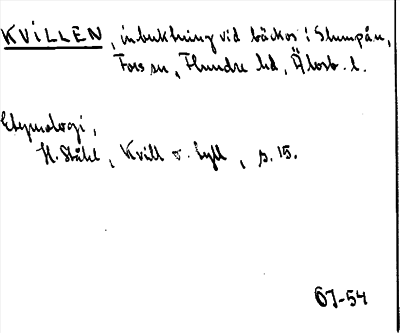 KVILLEN, inbuktning vid bäckos i Slumpån,
Fors sn, Flundre hd, Älvsb. l.
Etymologi,
H. Ståhl, Kvill o. tyll, s. 15.
67-54